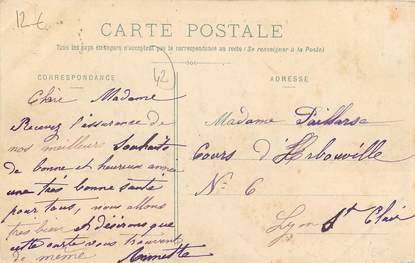 12€
CARTE POSTALE
Tous les pays étrangers n'acceptent pas la correspondance au recto (Se renseigner à la Poste)
CORRESPONDANCE
42
ADRESSE
Chère Madame
Recevez l'assurance de
nos meilleurs Souhaits
de bonne et heureuse année
une très bonne santé
pour tous, nous allons
très bien et désirons que
cette carte vous trouvent
de même Annette
Madame
Cours d'Herbouville
No 6
Lyon St Clair